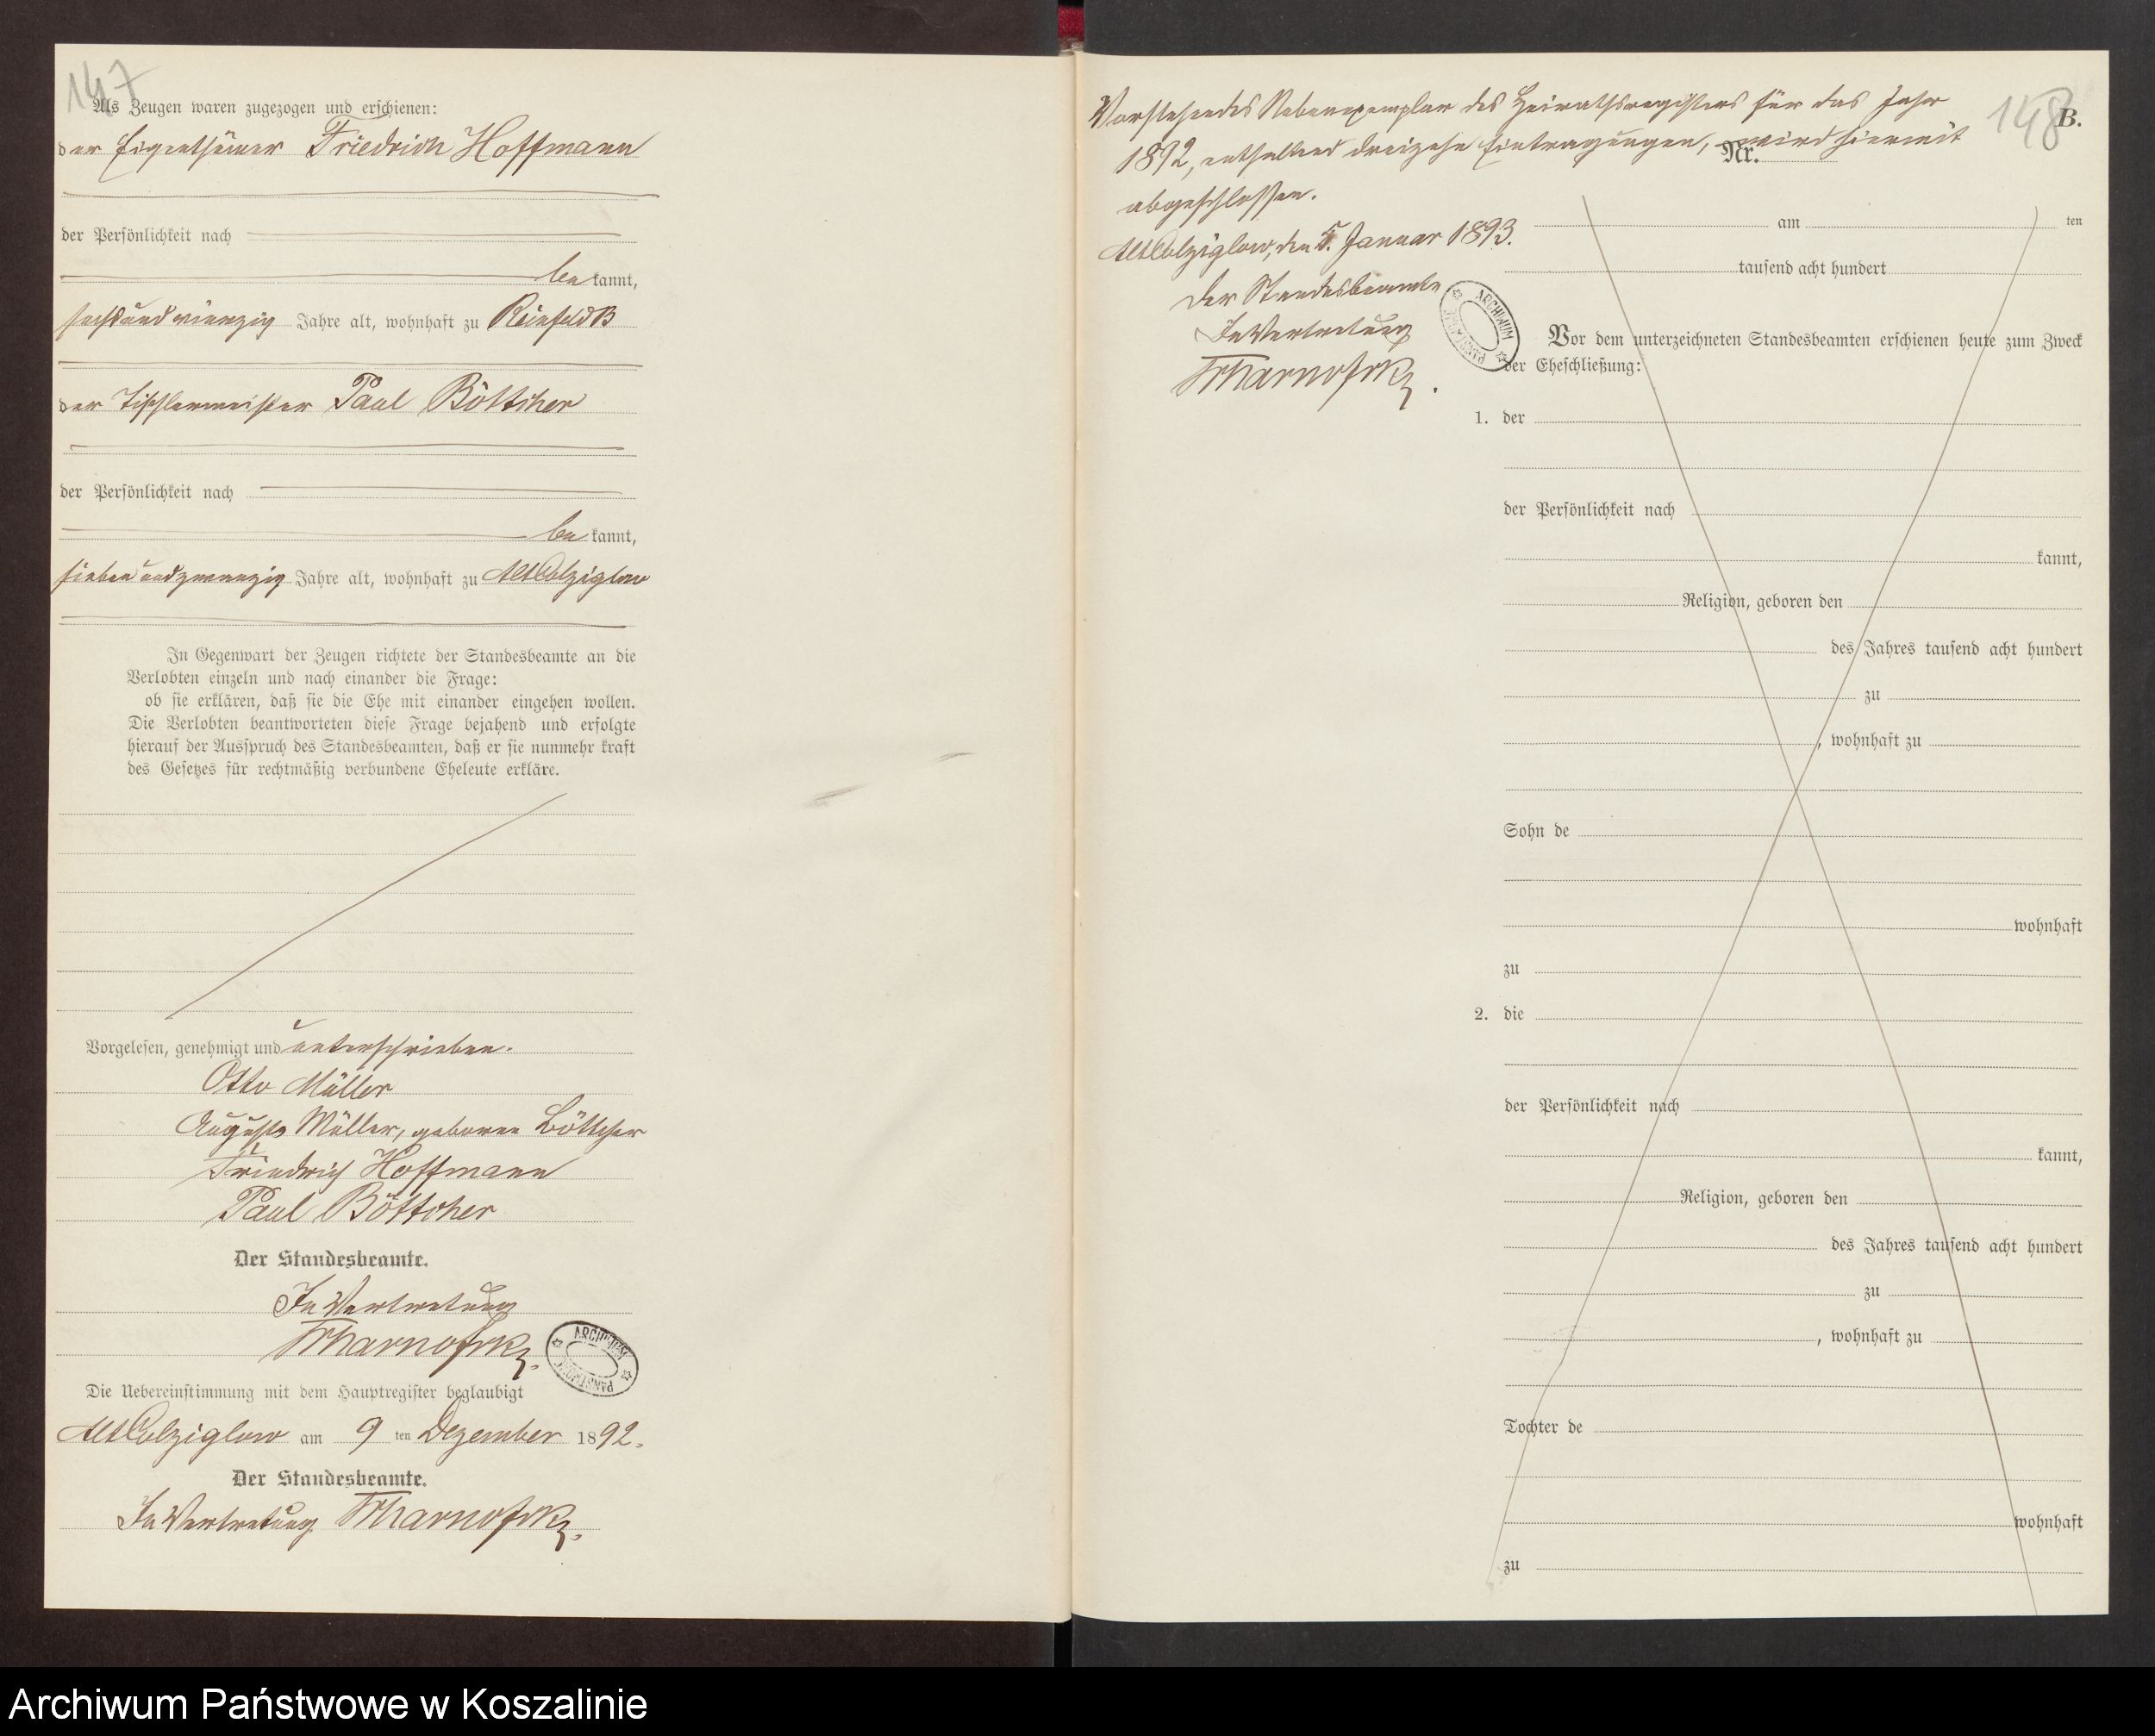 147
Als Zeugen waren zugezogen und erschienen:
der Eigenthümer Friedrich Hoffmann
der Persönlichkeit nach
be kannt,
sechsundvierzig Jahre alt, wohnhaft zu Reinfeld B
der Tischlermeister Paul Böttcher
der Persönlichkeit nach
be kannt,
siebenundzwanzig Jahre alt, wohnhaft zu Alt Colziglow
In Gegenwart der Zeugen richtete der Standesbeamte an die
Verlobten einzeln und nach einander die Frage:
ob sie erklären, daß sie die Ehe mit einander eingehen wollen.
Die Verlobten beantworteten diese Frage bejahend und erfolgte
hierauf der Ausspruch des Standesbeamten, daß er sie nunmehr kraft
des Gesetzes für rechtmäßig verbundene Eheleute erkläre.
Vorgelesen, genehmigt und unterschrieben.
Otto Müller
Auguste Müller, geborene Böttcher
Friedrich Hoffmann
Paul Böttcher
Der Standesbeamte.
In Vertretung
ARCHIWUM PAŃSTWOWE
Die Uebereinstimmung mit dem Hauptregister beglaubigt
Alt Colziglow am 9 ten Dezember 1892.
Der Standesbeamte.
In Vertretung
148
B.
Vorstehendes Nebenexemplar des Heirathsregisters für das Jahr
1892, enthaltend dreizehn Eintragungen, wird hiermit
Nr.
abgeschlossen.
Alt Colziglow, den 5. Januar 1893.
Der Standesbeamte
In Vertretung
ARCHIWUM PAŃSTWOWE
am ten
tausend acht hundert
Vor dem unterzeichneten Standesbeamten erschienen heute zum Zweck
der Eheschließung:
1. der
der Persönlichkeit nach
kannt,
Religion, geboren den
des Jahres tausend acht hundert
zu
, wohnhaft zu
Sohn de
wohnhaft
zu
2. die
der Persönlichkeit nach
kannt,
Religion, geboren den
des Jahres tausend acht hundert
zu
, wohnhaft zu
Tochter de
wohnhaft
zu
Archiwum Państwowe w Koszalinie